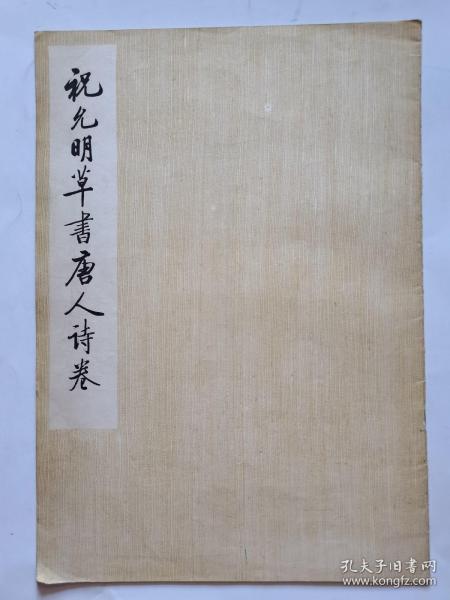 祝允明草書唐人诗卷
孔夫子旧书网
www.kongfz.com